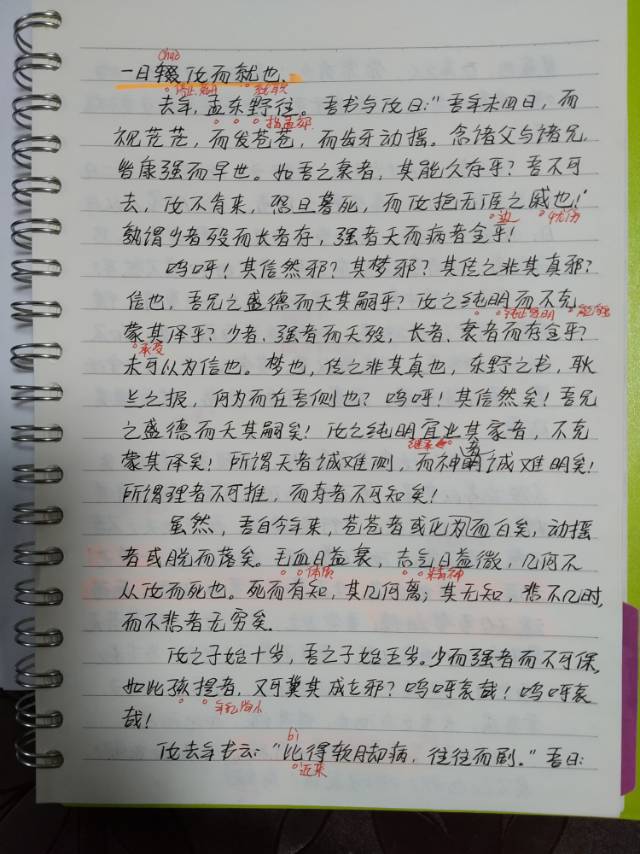 chuò
一日辍汝而就也.
停止,离开 就职
去年,孟东野往。吾书与汝曰:"吾年未四十,而
指孟郊
视茫茫,而发苍苍,而齿牙动摇。念诸父与诸兄,
皆康强而早世。如吾之衰者,其能久存乎?吾不可
去,汝不肯来,恐旦暮死,而汝抱无涯之戚也!"
边 忧伤
孰谓少者殁而长者存,强者夭而病者全乎!
呜呼!其信然邪?其梦邪?其传之非其真邪?
信也,吾兄之盛德而夭其嗣乎?汝之纯明而不克
纯正贤明 能够
蒙其泽乎?少者、强者而夭殁,长者、衰者而存全乎?
承受
未可以为信也。梦也,传之非其真也,东野之书,耿
兰之报,何为而在吾侧也?呜呼!其信然矣!吾兄
之盛德而夭其嗣矣!汝之纯明宜业其家者,不克
继承
蒙其泽矣!所谓天者诚难测,而神者诚难明矣!
所谓理者不可推,而寿者不可知矣!
虽然,吾自今年来,苍苍者或化为而白矣,动摇
者或脱而落矣。毛血日益衰,志气日益微,几何不
体质 精神
从汝而死也。死而有知,其几何离;其无知,悲不几时,
而不悲者无穷矣.
汝之子始十岁,吾之子始五岁。少而强者而不可保,
如此孩提者,又可冀其成立邪?呜呼哀哉!呜呼哀
年纪尚小
哉!
bì
汝去年书云:"比得软脚病,往往而剧。"吾曰:
近来